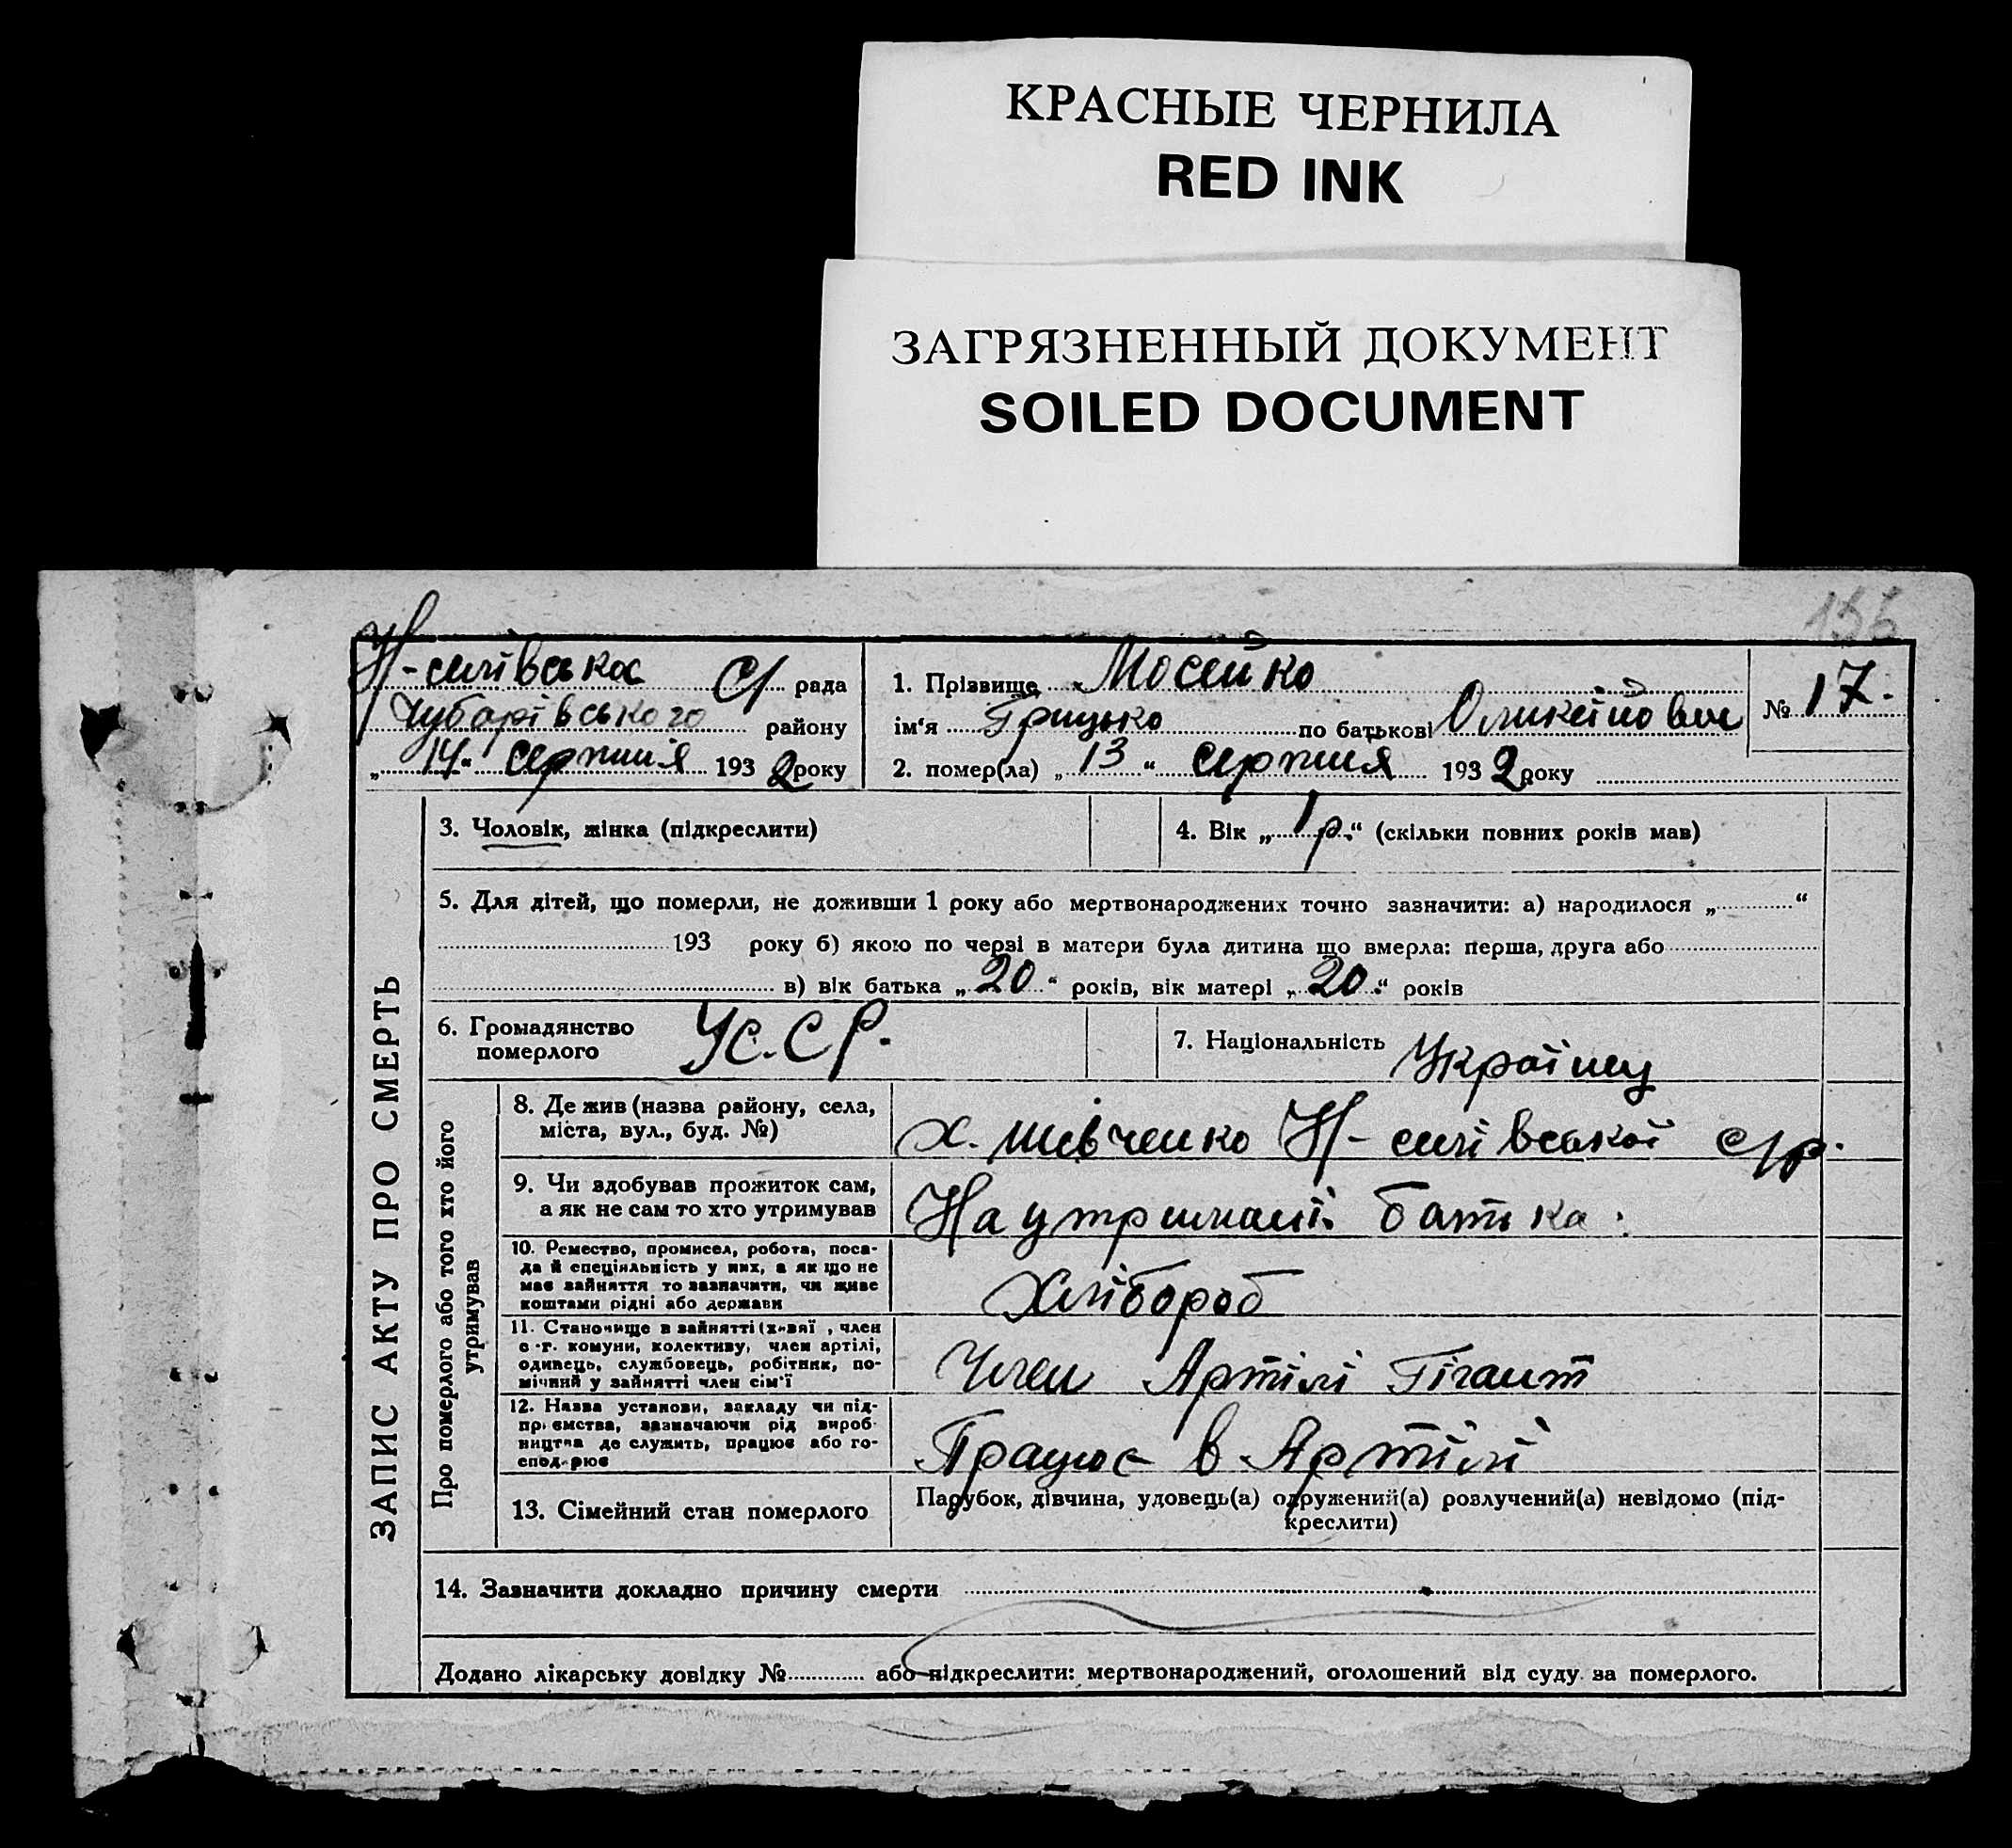 КРАСНЫЕ ЧЕРНИЛА
RED INK
ЗАГРЯЗНЕННЫЙ ДОКУМЕНТ
SOILED DOCUMENT
156
Н-силівська С/ рада
Чубарівського району
„14“ серпня 1932 року
1. Прізвище Мосейко
ім‘я Грицько по батькові
№ 17.
2. помер(ла) „13“ серпня 1932 року
ЗАПИС АКТУ ПРО СМЕРТЬ
3. Чоловік, жінка (підкреслити)
4. Вік „1 р.“ (скільки повних років мав)
5. Для дітей, що померли, не доживши 1 року або мертвонароджених точно зазначити: а) народилося „ “
193 року б) якою по черзі в матери була дитина що вмерла: перша, друга або
в) вік батька „20“ років, вік матері „20“ років
6. Громадянство
померлого
УС.СР.
7. Національність Українц
Про померлого або того хто його
утримував
8. Де жив (назва району, села,
міста, вул., буд. №)
х. Шевченко Н-силівської с/р.
9. Чи здобував прожиток сам,
а як не сам то хто утримував
На утриманні батька.
10. Ремество, промисел, робота, поса-
да й спеціяльність у них, а як що не
має зайняття то зазначити, чи живе
коштами рідні або держави
Хлібороб
11. Становище в зайнятті (хазяї, член
с.-г. комуни, колективу, член артілі,
одинець, службовець, робітник, по-
мічний у зайнятті член сім‘ї
Член Артілі Гігант
12. Назва установи, закладу чи під-
приємства, зазначаючи рід вироб-
ництва де служить, працює або го-
сподарює
Працює в Артілі
13. Сімейний стан померлого
Парубок, дівчина, удовець(а) одружений(а) розлучений(а) невідомо (під-
креслити)
14. Зазначити докладно причину смерти
Додано лікарську довідку № або підкреслити: мертвонароджений, оголошений від суду за померлого.